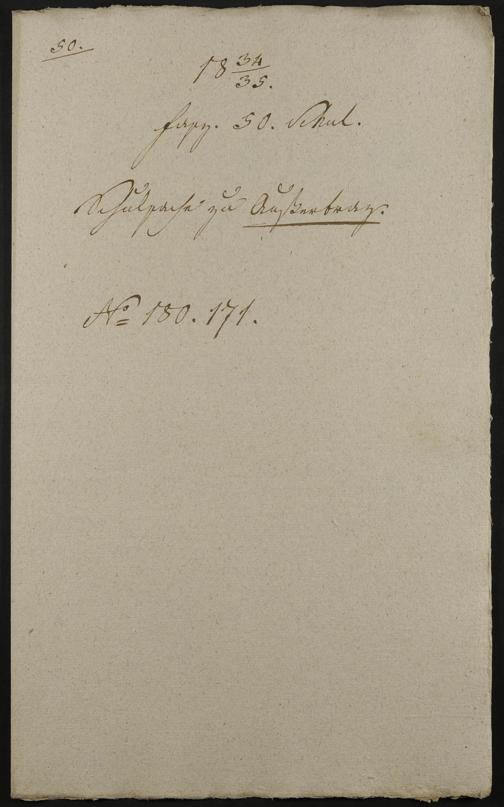 50.
18 34/35.
Fasz. 50. Schul.
Schulsache zu Außerbraz.
No 180. 171.